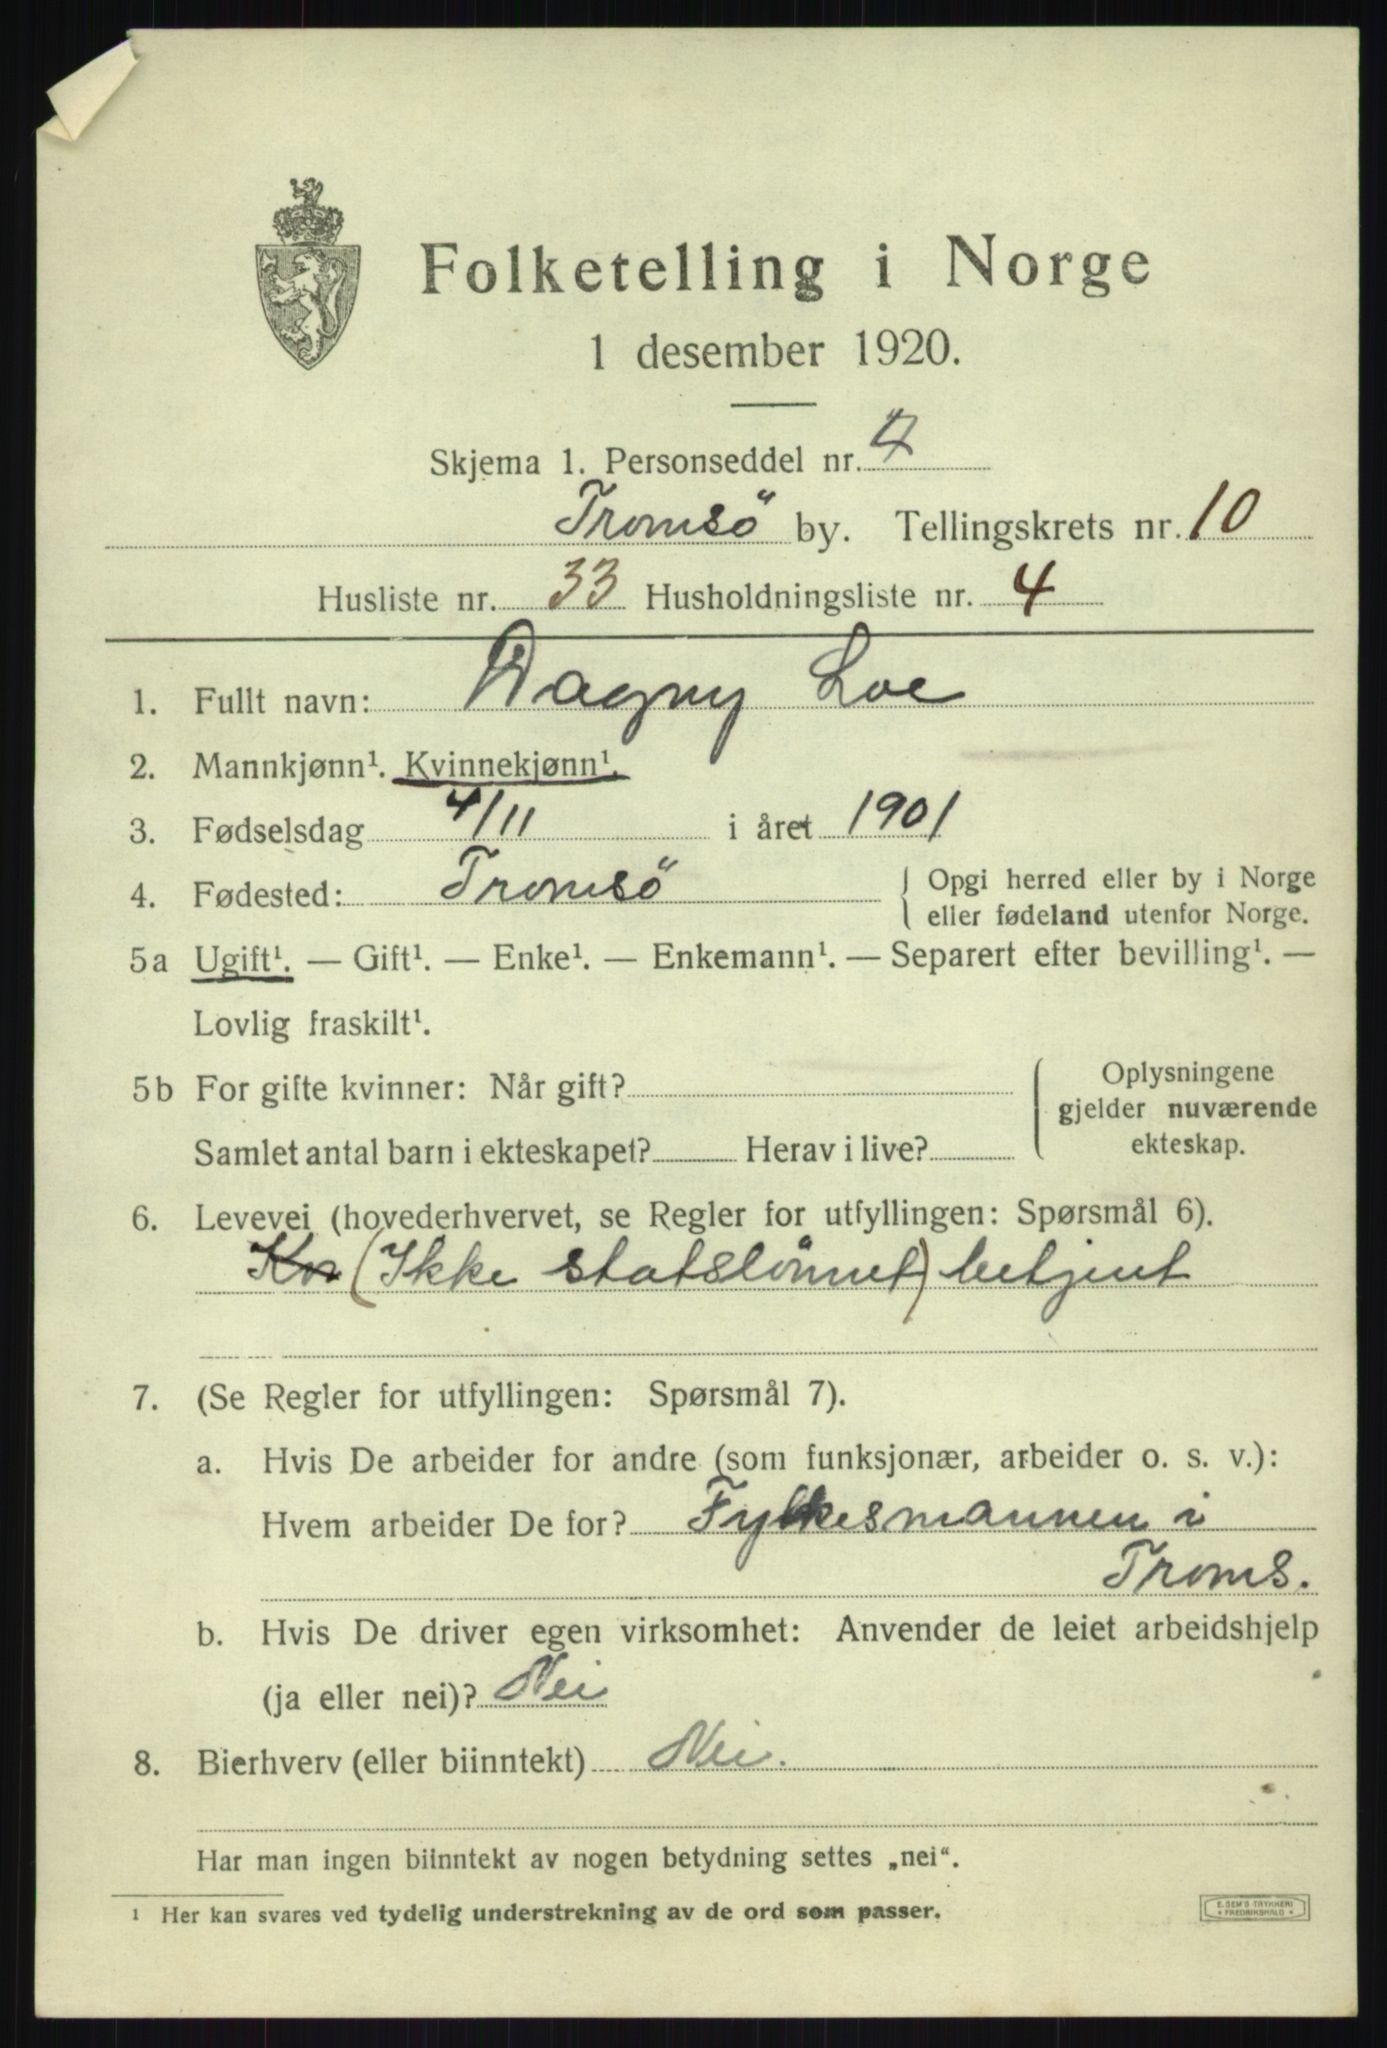 Folketelling i Norge
1 desember 1920.
Skjema 1. Personseddel nr. 4
Tromsö by. Tellingskrets nr. 10
Husliste nr. 33 Husholdningsliste nr. 4
1. Fullt navn: Dagny Loe
2. Mannkjønn¹. Kvinnekjønn¹.
3. Fødselsdag 4/11 i året 1901
4. Fødested: Tromsö { Opgi herred eller by i Norge
eller fødeland utenfor Norge.
5a Ugift¹. — Gift¹. — Enke¹. — Enkemann¹. — Separert efter bevilling¹. —
Lovlig fraskilt¹.
5b For gifte kvinner: Når gift?
Samlet antal barn i ekteskapet? Herav i live?
{ Oplysningene
gjelder nuværende
ekteskap.
6. Levevei (hovederhvervet, se Regler for utfyllingen: Spørsmål 6).
(Ikke statslönnet) betjent
7. (Se Regler for utfyllingen: Spørsmål 7).
a. Hvis De arbeider for andre (som funksjonær, arbeider o. s. v.):
Hvem arbeider De for? Fylkesmannen i
Troms.
b. Hvis De driver egen virksomhet: Anvender de leiet arbeidshjelp
(ja eller nei)? Nei
8. Bierhverv (eller biinntekt) Nei.
Har man ingen biinntekt av nogen betydning settes „nei“.
¹ Her kan svares ved tydelig understrekning av de ord som passer.
E. SEM'S TRYKKERI
• FREDRIKSHALD •